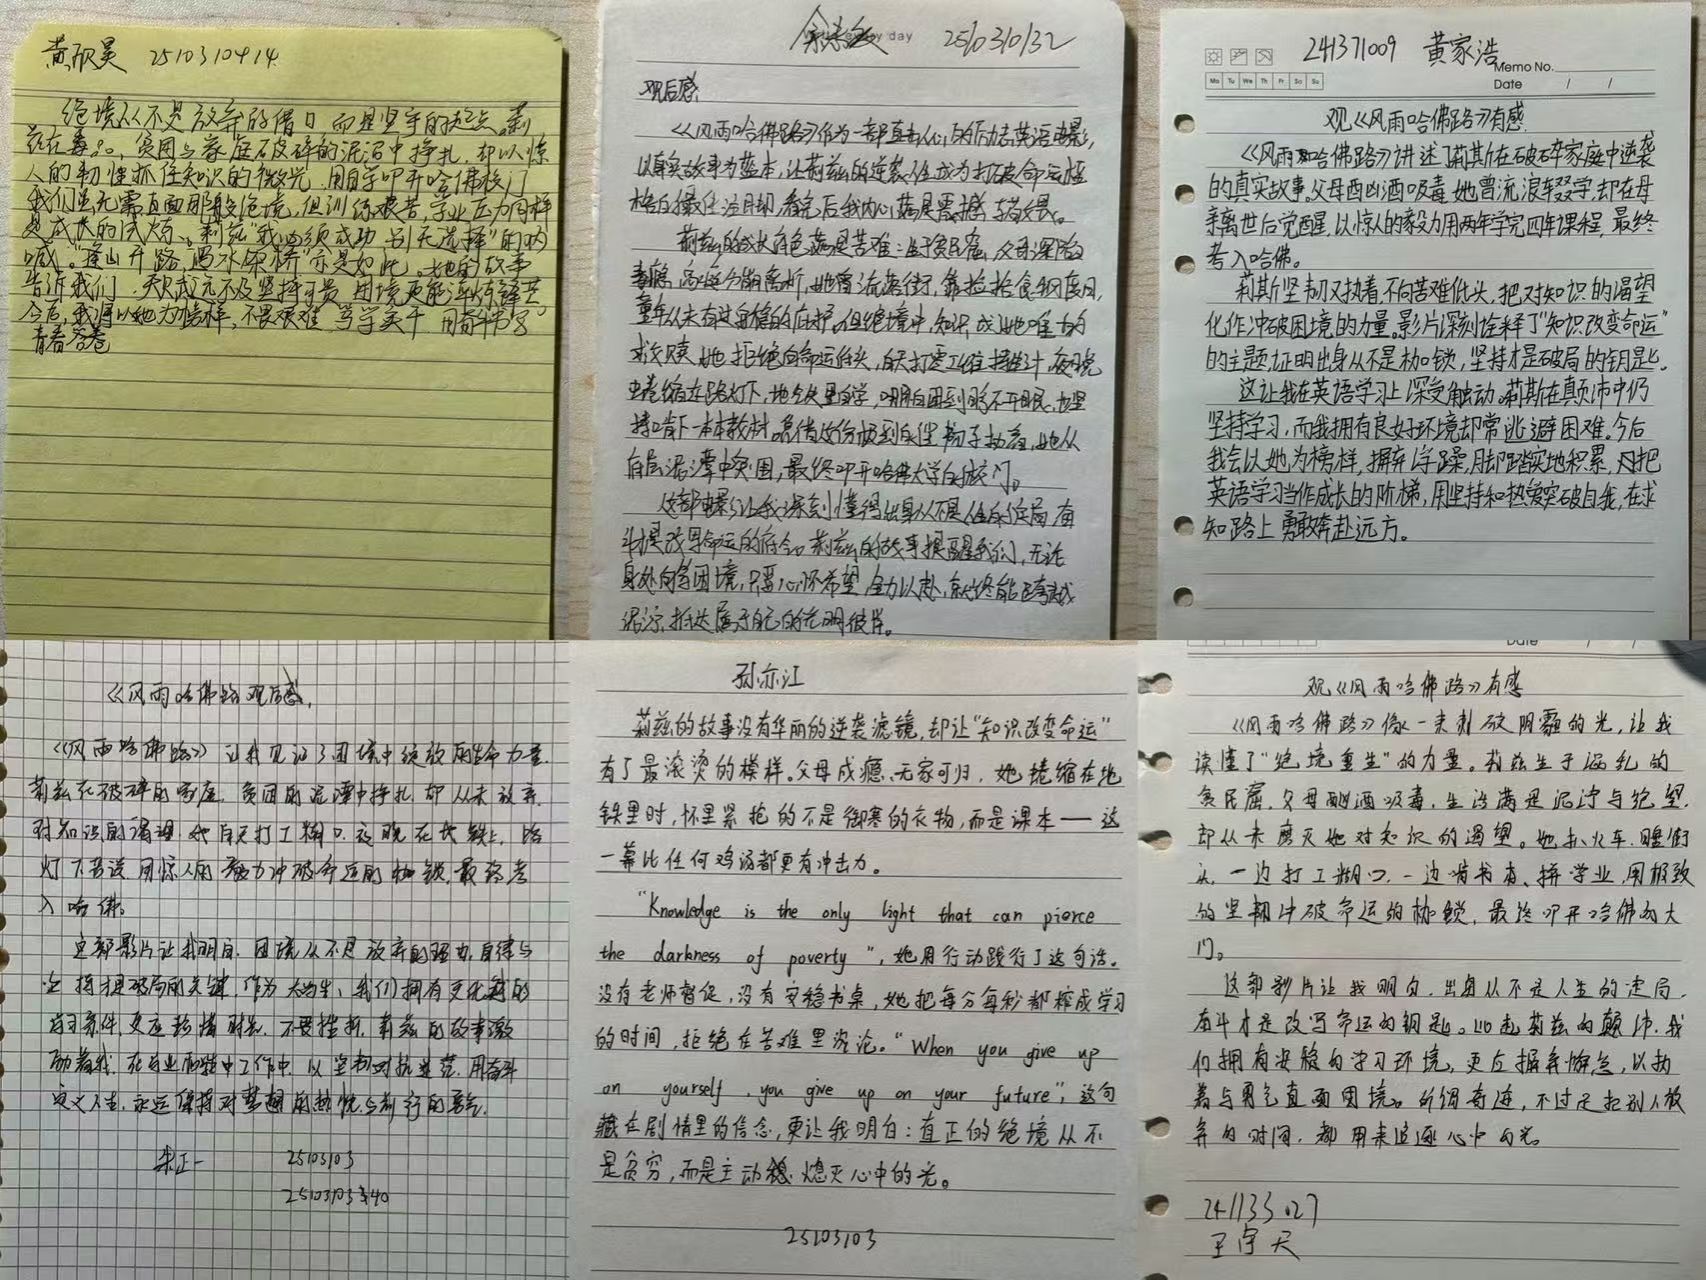 黄 昊 2510310414
绝境从不是放弃的借口 而是坚守的起点。莉
兹在毒品、贫困与家庭破碎的泥沼中挣扎,却以惊
人的韧性抓住知识的微光,用自学叩开哈佛校门
我们虽无需直面那般绝境,但训练艰苦,学业压力同样
是成长的试炼。莉兹"我必须成功 别无选择"的呐
喊。"逢山开路,遇水架桥"亦是如此。她的故事
告诉我们,天赋远不及坚持可贵 困境更能淬炼锋芒
今后,我将以她为榜样,不畏艰难 笃学实干 用奋斗书写
青春答卷
day 2510310132
观后感
《风雨哈佛路》作为一部直击人心的励志英语电影,
以真实故事为蓝本,让莉兹的逆袭人生成为打破命运桎
梏的最佳注脚,看完后我内心满是震撼与敬畏。
莉兹的成长底色满是苦难:生于贫民窟,父母深陷
毒瘾 高 分崩离析,她曾流落街 靠捡拾食物度日,
童年从未有过安稳的庇护。但绝境中,知识成为她唯一的
救赎,她拒绝向命运低头,白天打零工维持生计,夜晚
蜷缩在路灯下、地铁里自学,哪怕困到睁不开眼,也坚
持啃下一本本教材。凭借这份 执着,她从
底层泥潭中突围,最终叩开哈佛大学的校门。
这部电影让我深刻懂得出身从不是人生的定局,奋
斗是改写命运的 。莉兹的故事提醒我们,无论
身处何等困境,只要心怀希望 全力以赴,就终能跨越
泥泞,抵达属于自己的光明彼岸。
241371009 黄家浩
Memo No.
Mo Tu We Th Fr Sa Su
Date / /
观《风雨哈佛路》有感
《风雨哈佛路》讲述了莉斯在破碎家庭中逆袭
的真实故事。父母酗酒吸毒,她曾流浪辍学,却在母
亲离世后觉醒,以惊人的毅力用两年学完四年课程,最终
考入哈佛。
莉斯坚韧又执着,不向苦难低头,把对知识的渴望
化作冲破困境的力量。影片深刻诠释了"知识改变命运"
的主题,证明出身从不是枷锁,坚持才是破局的钥匙。
这让我在英语学习上深受触动。莉斯在颠沛中仍
坚持学习,而我拥有良好环境却常逃避困难。今后
我会以她为榜样,摒弃浮躁,脚踏实地积累,把
英语学习当作成长的阶梯,用坚持和热爱突破自我,在求
知路上勇敢奔赴远方。
《风雨哈佛路观后感》
《风雨哈佛路》让我见证了困境中绽放的生命力量.
莉兹在破碎的家庭、贫困的泥潭中挣扎,却从未放弃
对知识的渴望,她白天打工糊口,夜晚在地铁上、路
灯下苦读,用惊人的毅力冲破命运的枷锁,最终考
入哈佛。
这部影片让我明白,困境从不是放弃的理由,自律与
坚持才是破局的关键,作为大学生,我们拥有更优越的
学习条件,更应珍惜时光,不畏挫折,莉兹的故事激
励着我,在学业和 中工作中,以坚韧对抗迷茫,用奋斗
定义人生,永远保持对梦想的热忱与前行的勇气.
朱正一 25103103
孙亦江
莉兹的故事没有华丽的逆袭滤镜,却让"知识改变命运"
有了最滚烫的模样。父母成瘾、无家可归,她蜷缩在地
铁里时,怀里紧抱的不是御寒的衣物,而是课本——这
一幕比任何鸡汤都更有冲击力。
"Knowledge is the only light that can pierce
the darkness of poverty",她用行动践行了这句话。
没有老师督促,没有安稳书桌,她把每分每秒都榨成学习
的时间,拒绝在苦难里沉沦。"When you give up
on yourself,you give up on your future",这句
藏在剧情里的信念,更让我明白:真正的绝境从不
是贫穷,而是主动 熄灭心中的光。
25103103
Date / /
观《风雨哈佛路》有感
《风雨哈佛路》像一束刺破阴霾的光,让我
读懂了"绝境重生"的力量。莉兹生于混乱的
贫民窟,父母酗酒吸毒,生活满是泥泞与绝望,
却从未磨灭她对知识的渴望。她扒火车、睡街
头,一边打工糊口,一边啃书本、拼学业,用极致
的坚韧冲破命运的枷锁,最终叩开哈佛的大
门。
这部影片让我明白,出身从不是人生的定局,
奋斗才是改写命运的钥匙。比起莉兹的颠沛,我
们拥有安稳的学习环境,更应摒弃懈怠,以执
着与勇气直面困境。所谓奇迹,不过是把别人放
弃的时间,都用来追逐心中的光。
241135027
王宇天